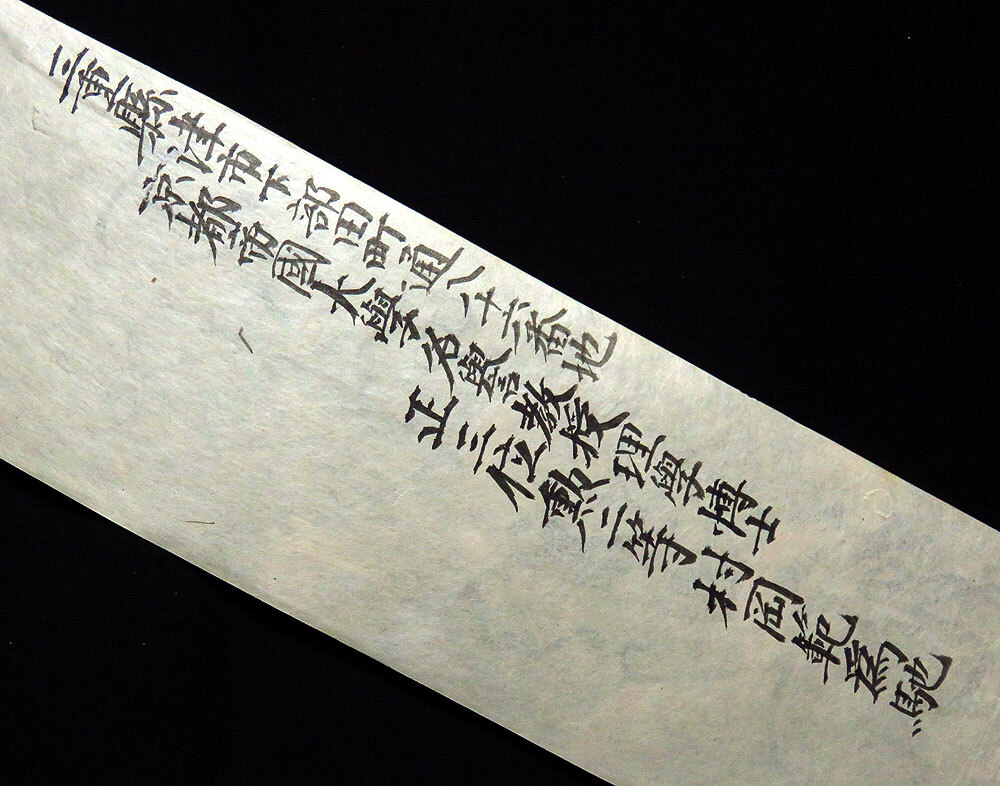 三重縣津市下部田町通八十六番地
京都帝國大學名譽教授理學博士
正三位勲二等村岡範為馳